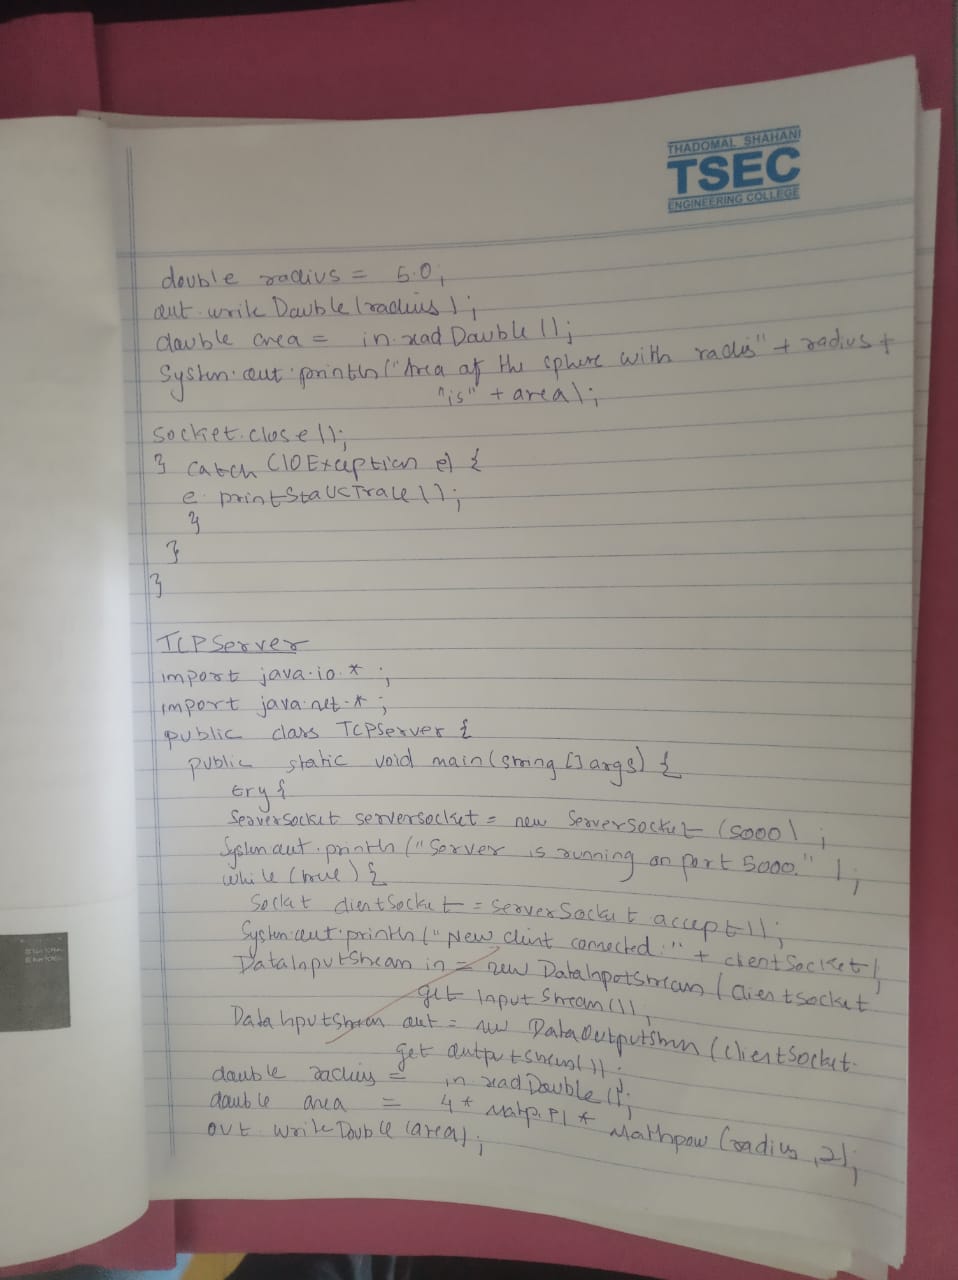 THADOMAL SHAHANI
TSEC
ENGINEERING COLLEGE
double radius = 5.0;
out.writeDouble(radius);
double area = in.readDouble();
System.out.println("Area of the sphere with radis" + radius +
"is" + area);
socket.close();
} catch (IOException e) {
e.printStackTrace();
}
}
}
TCPServer
import java.io.*;
import java.net.*;
public class TCPServer {
public static void main(String [] args) {
try {
ServerSocket serverSocket = new ServerSocket (5000);
System.out.println("Server is running on port 5000.");
while (true) {
Socket clientSocket = serverSocket.accept();
System.out.println("New client connected:" + clientSocket);
DataInputStream in = new DataInputStream (clientSocket
getInputStream());
DataInputStream out = new DataOutputStream (clientSocket.
getOutputStream());
double radius = in.readDouble();
double area = 4 * Math.PI * Math.pow (radius, 2);
out.writeDouble (area);